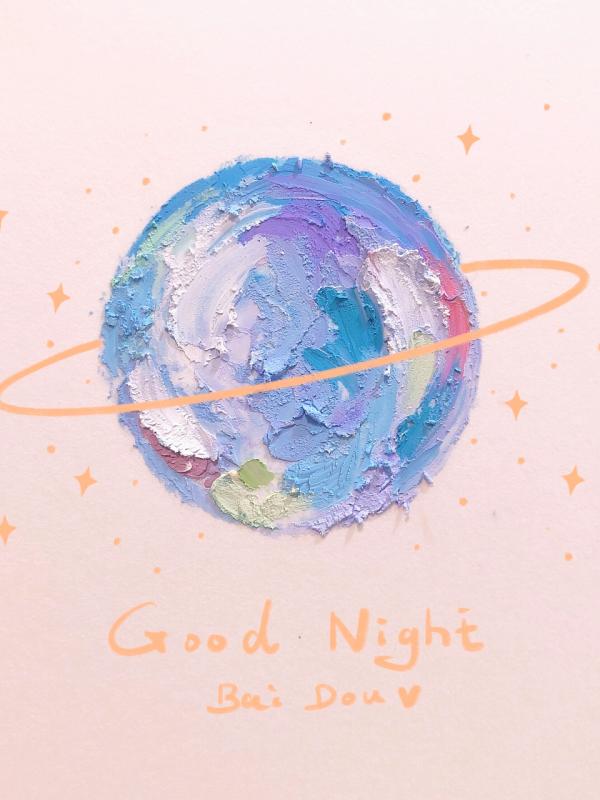 Good Night
Bai Dou♥